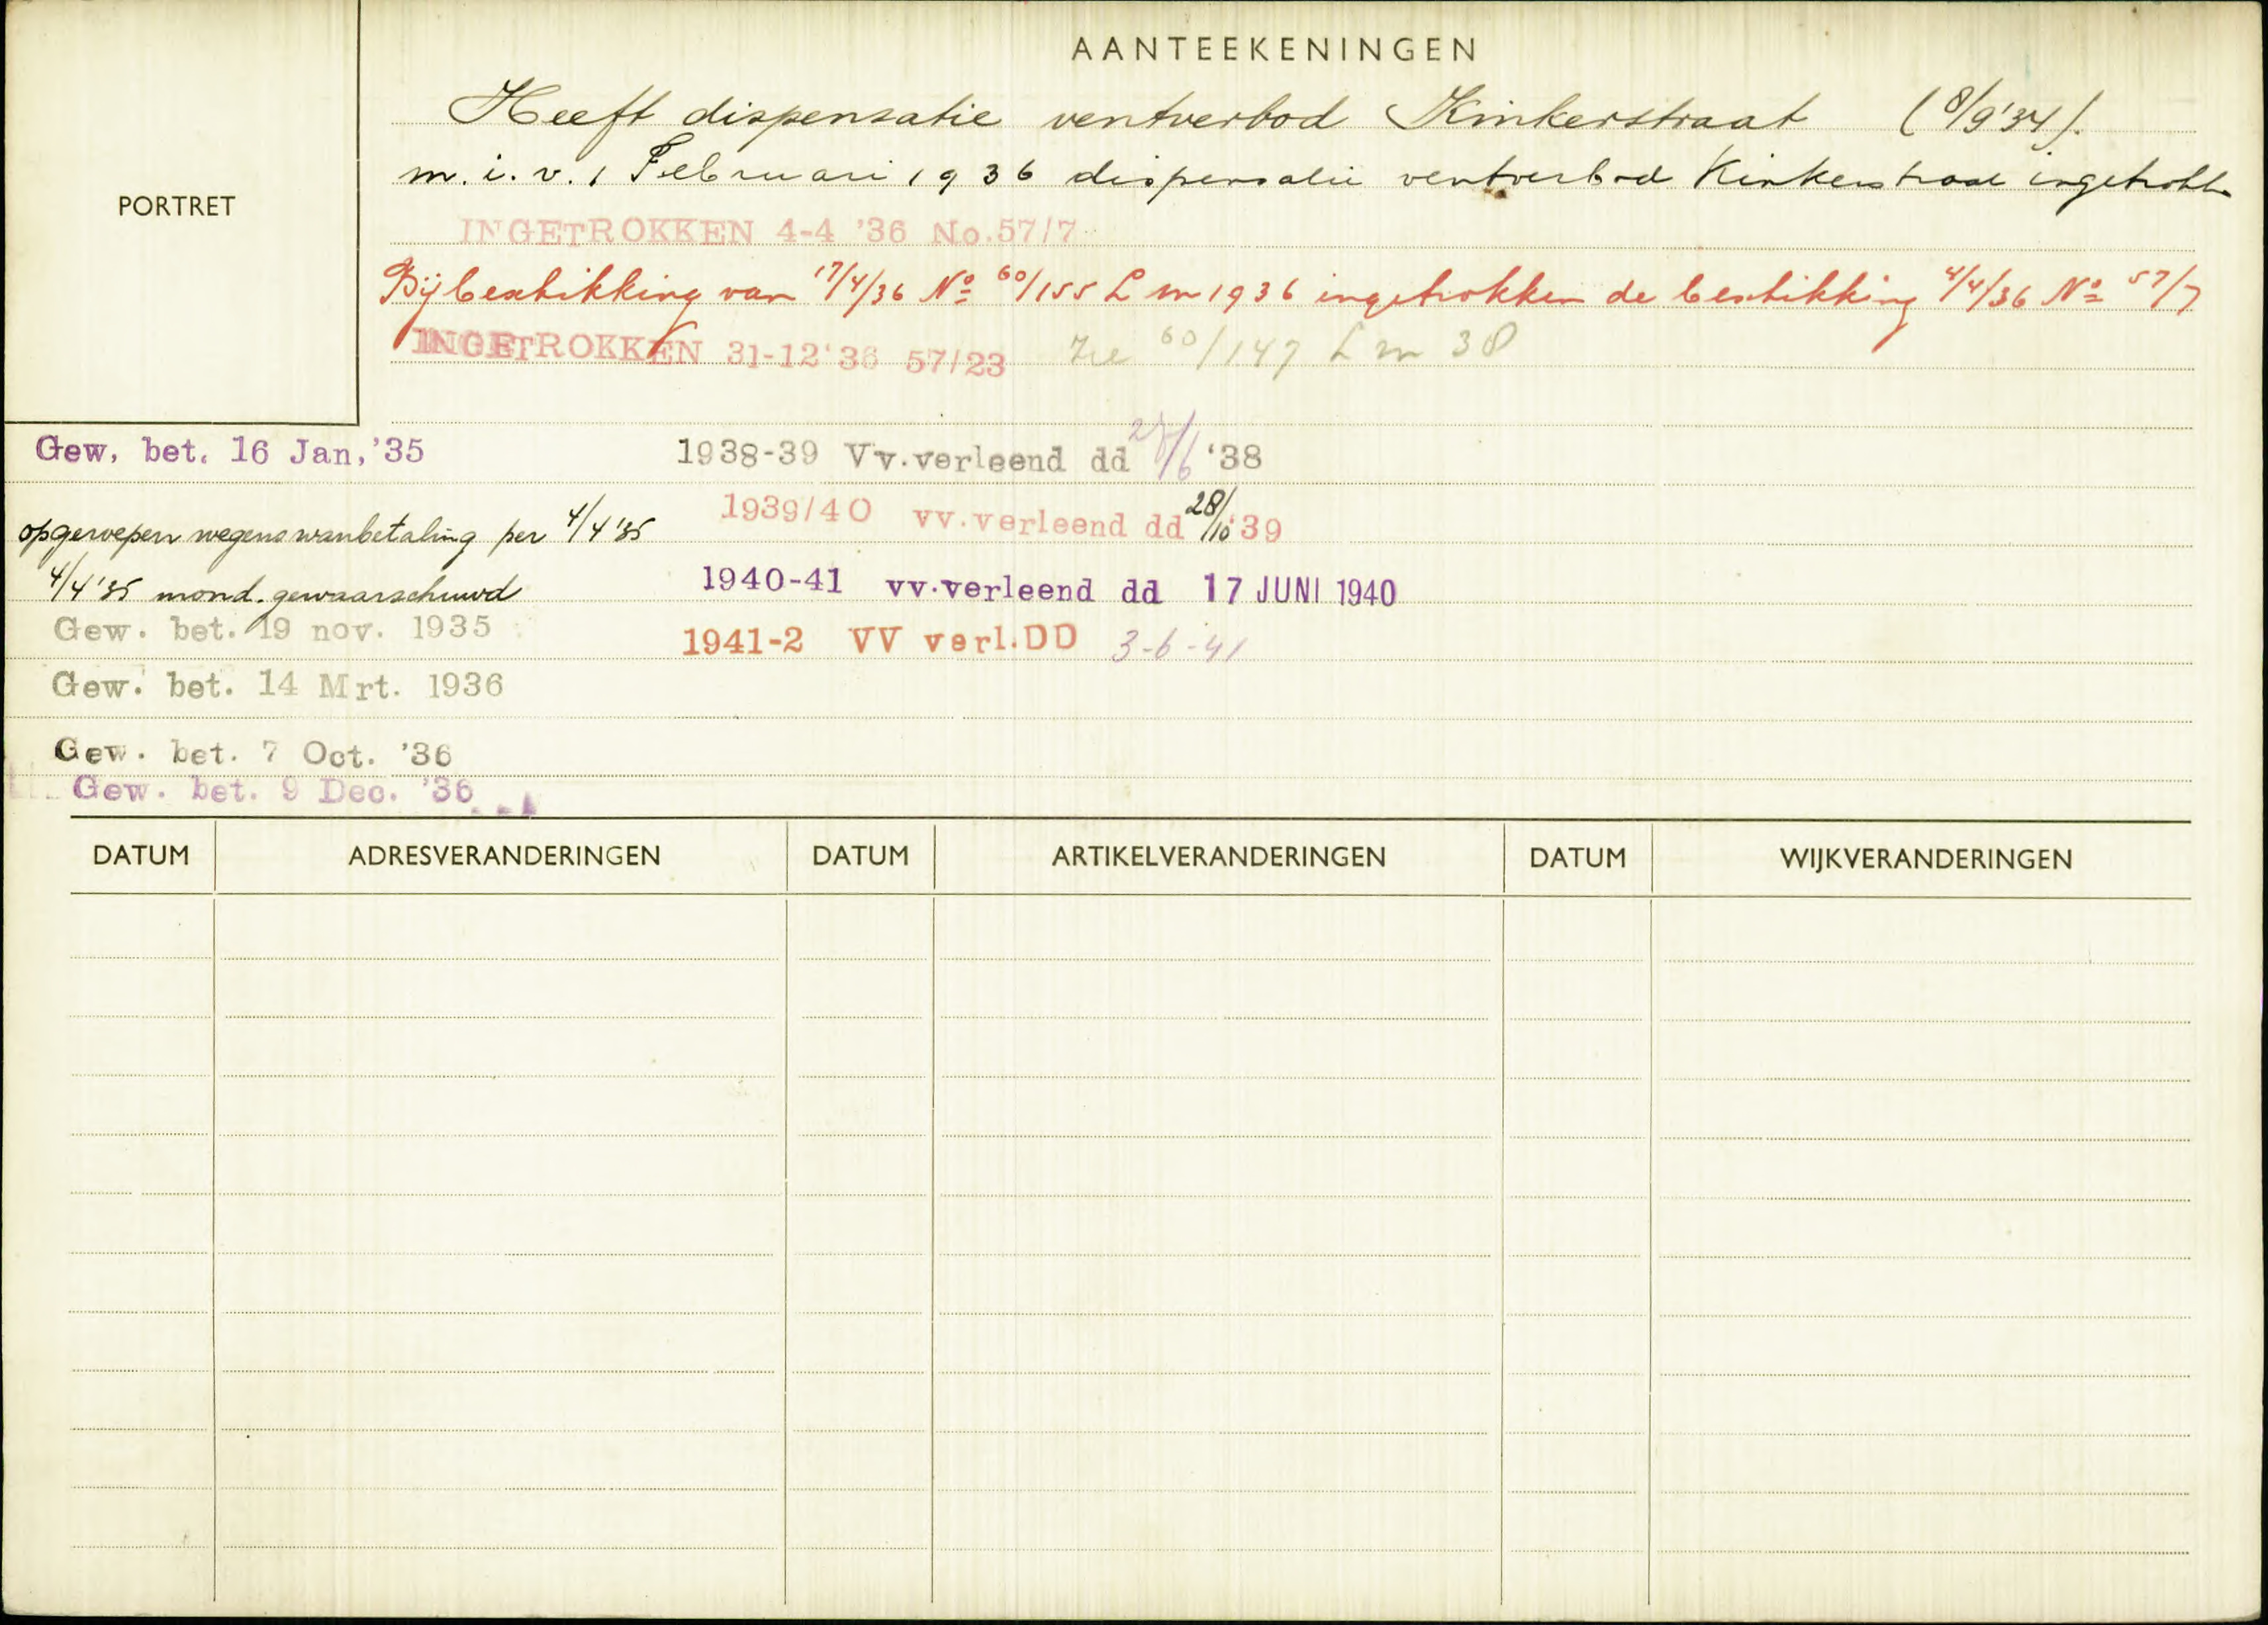 AANTEEKENINGEN
PORTRET
Heeft dispensatie ventverbod Kinkerstraat (8/9'34).
m.i.v. 1 Februari 1936 dispensatie ventverbod Kinkerstraat ingetrokken
INGETROKKEN 4-4 '36 No.57/7
Bij beschikking van 17/4/36 No 60/155 L m 1936 ingetrokken de beschikking 4/4/36 No 57/7
INGETROKKEN 31-12'36 57/23 Zie 60/147 L m 38
Gew. bet. 16 Jan,'35
1938-39 Vv.verleend dd /6 '38
opgeroepen wegens wanbetaling per 4/4'35
1939/40 vv.verleend dd 28/10'39
4/4'35 mond. gewaarschuwd
1940-41 vv.verleend dd 17 JUNI 1940
Gew. bet. 19 nov. 1935
1941-2 VV verl.DD 3-6-41
Gew. bet. 14 Mrt. 1936
Gew. bet. 7 Oct. '36
Gew. bet. 9 Dec. '36
DATUM ADRESVERANDERINGEN DATUM ARTIKELVERANDERINGEN DATUM WIJKVERANDERINGEN